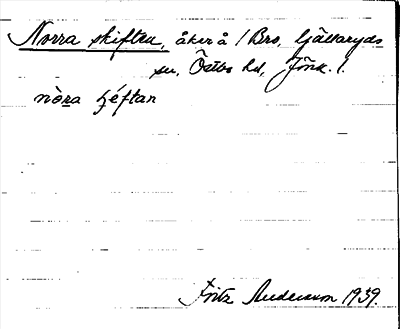 Norra skiften, åker å 1 Bro, Gällaryds
sn, Östbo hd, Jönk. l.
nòra ʃéftan
Fritz Andersson 1939.